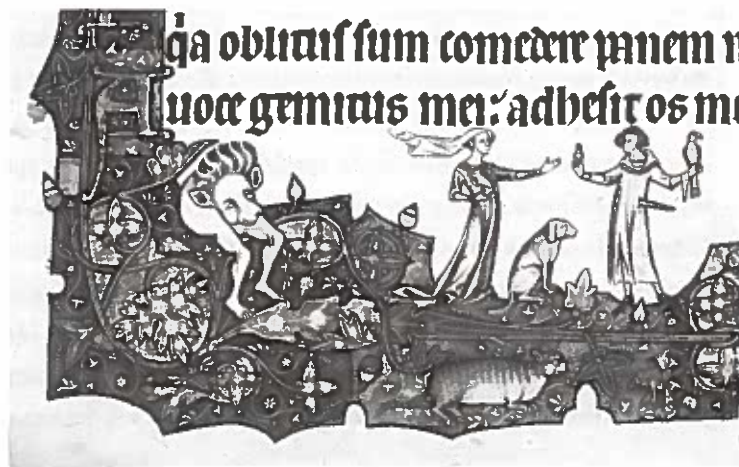 qͥa oblituſ ſum comedere panem m
uoce gemitus mei: adheſit os me